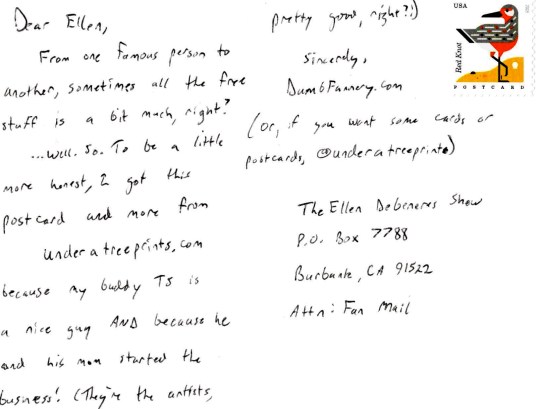 Dear Ellen,
From one famous person to
another, sometimes all the free
stuff is a bit much, right?
...Well. So. To be a little
more honest, I got this
postcard and more from
underatreeprints.com
because my buddy TJ is
a nice guy AND because he
and his mom started the
business! (They're the artists,
pretty good, right?!)
Sincerely,
DumbFannery.com
(or, if you want some cards or
postcards, @underatreeprints)
The Ellen Degeneres Show
P.O. Box 7788
Burbank, CA 91522
Attn: Fan Mail
USA
Red Knot
POSTCARD